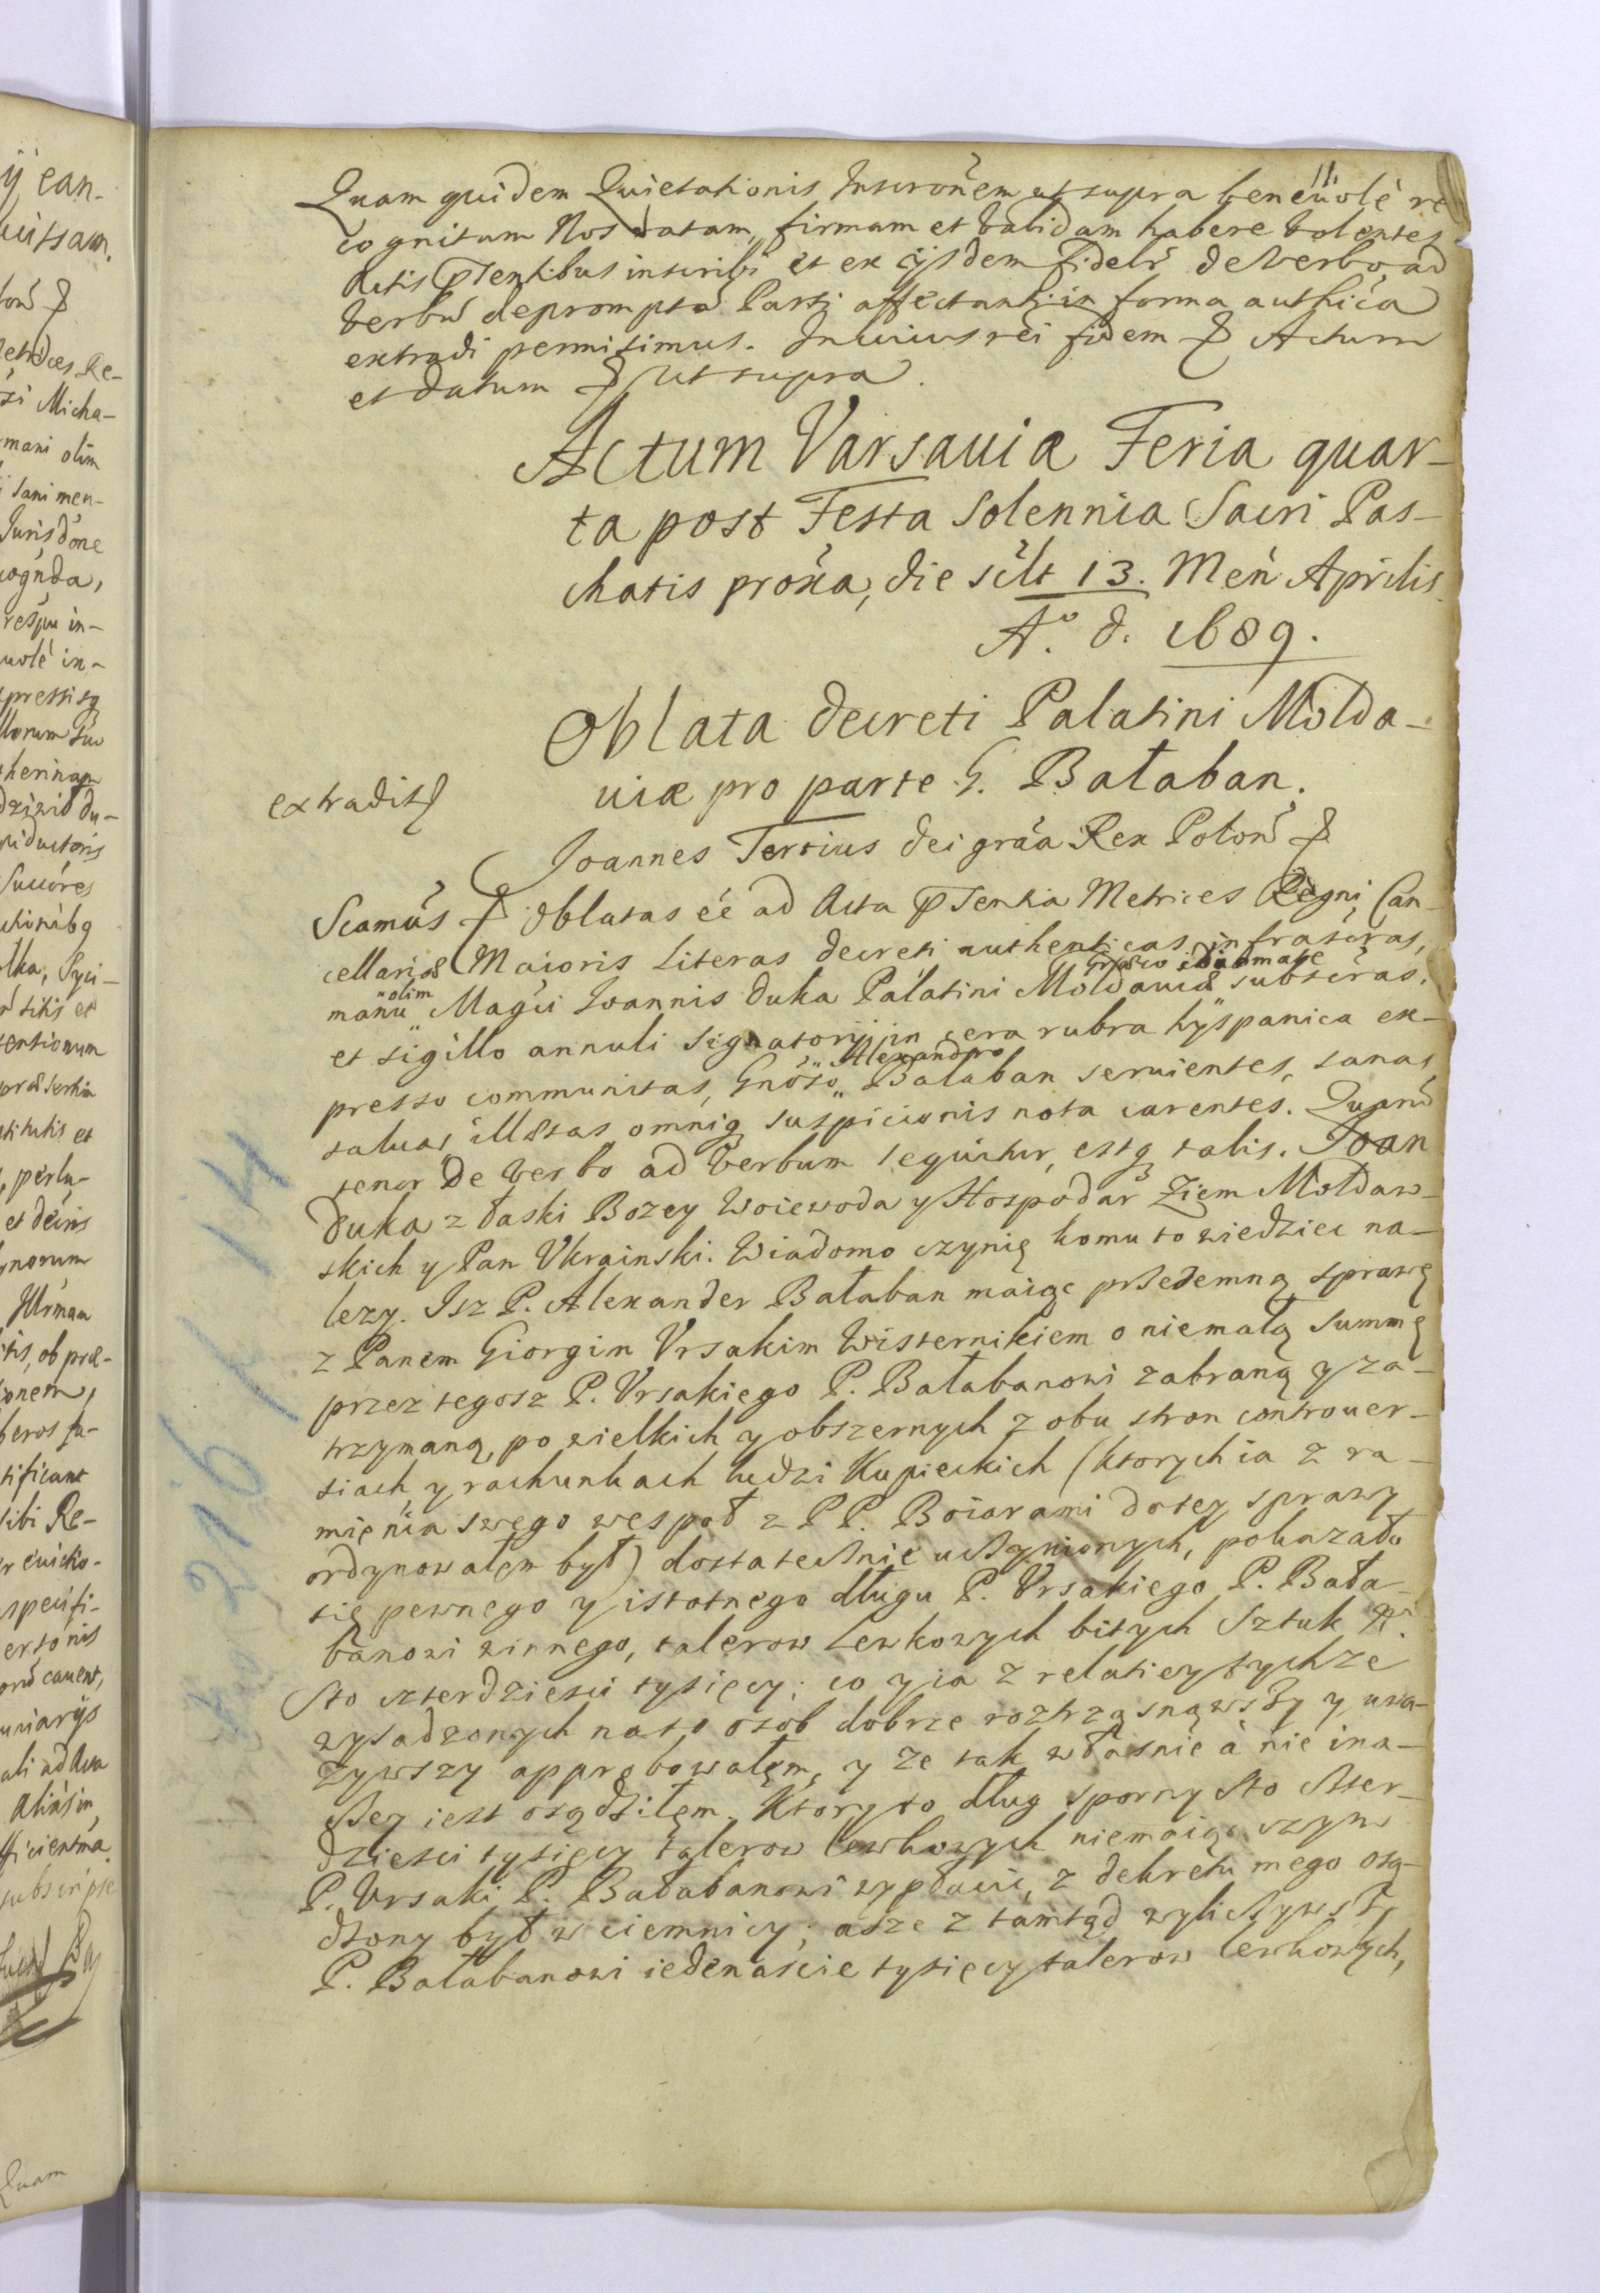 11.
Quam quidem Quietationis Inscrõnem ut supra beneuolè re
cognitam Nos ratam, firmam et validam habere volentes
Actis pñtentibus inscribi et ex ijsdem fidelr̃ de verbo, ad
verbũ depromptã Parti affectanti in forma authẽca
extradi permisimus. In cuius rei fidem Actum
et datum ut supra.
Actum Varsauiæ Feria quar-
ta post Festa Solennia Sacri Pas-
chatis prox̃a, die sclt̃ 13. Meñ Aprilis
Aº. d. 1689.
Oblata decreti Palatini Molda-
uiæ pro parte G. Bałaban.
extradit
Joannes Tertius dei grãa Rex Polonˀ
Scamũs Oblatas eẽ ad Acta pñtentia Metrices Regni, Can-
cellariæ Maioris Literas decreti authenticas infrascr̃as,
manu olim Magci Ioannis Duka Palatini Moldauiæ Græco idiomate subscr̃as.
et sigillo annuli signatorij in cera rubra hyspanica ex-
presso communitas, Gnõso Alexandro Bałaban seruientes, sanas,
saluas illæsas omniq suspicionis nota carentes. Quarũ
tenor de verbo ad verbum sequitur, estq talis. Ioan
Duka z łaski Bozey Woiewoda y Hospodar Ziem Mołdaw-
skich y Pan Vkrainski. Wiadomo czynię komu to wiedziec na-
lezy. Isz P. Alexander Bałaban maiąc przedemną sprawę
z Panem Giorgim Vrsakim Wisternikiem o niemałą summę
przez tegosz P. Vrsakiego P. Bałabanowi zabraną y za-
trzymaną, po wielkich y obszernych z obu stron controuer-
siach y rachunkach ludzi Kupieckich (ktorych ia z ra-
mięnia swego wespoł z PP. Boiarami do tey sprawy
ordynowałem był) dostatecznie uczynionych, pokazało
się pewnego y istotnego długu P. Vrsakiego P. Bała-
banowi winnego, talerow Lewkowych bitych Sztuk Nr̃.
Sto czterdziesci tysięcy; co y ia z relatiey tychze
wysadzonych na to osob dobrze roztrząsnąwszy y uwa-
zywszy approbowałem, y ze tak własnie à nie ina-
czey iest osądziłęm. Ktory to dług sporny sto czter-
dziesci tysięcy talerow lewkowych niemaiąc czym
P. Vrsaki P. Bałabanowi wypłacic, z dekretu mego osą-
dzony był w ciemnicy; asze z tamtąd wyliczywszy
P. Bałabanowi iedenascie tysięcy talerow lewkowych,